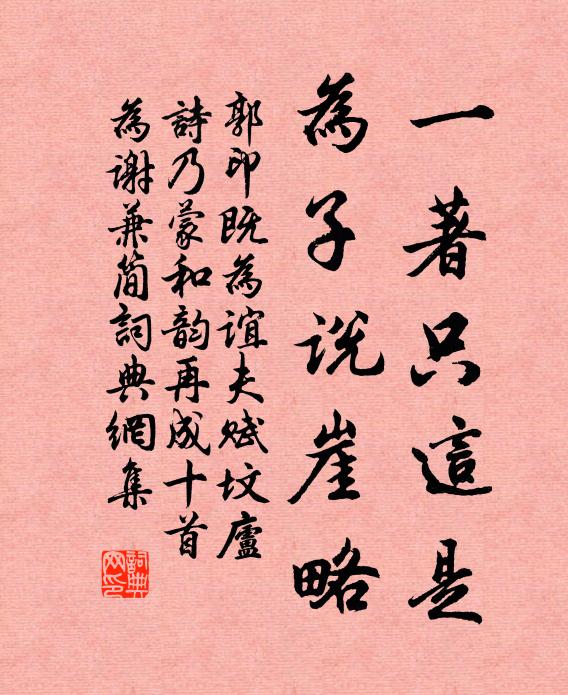 一著只這是
為子説崖略
郭印既為誼夫賦坟廬
詩乃蒙和韵再成十首
為謝兼簡詞典網集
詞典网印